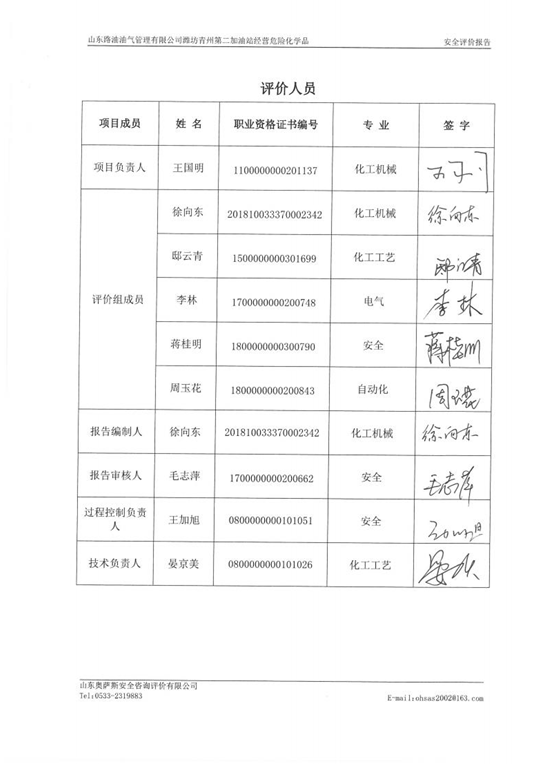 山东路浦油气管理有限公司潍坊青州第二加油站经营危险化学品 安全评价报告
评价人员
项目成员 姓 名 职业资格证书编号 专 业 签 字
项目负责人 王国明 1100000000201137 化工机械
评价组成员 徐向东 201810033370002342 化工机械 徐向东
邸云青 1500000000301699 化工工艺 邸云青
李林 1700000000200748 电气 李林
蒋桂明 1800000000300790 安全 蒋桂明
周玉花 1800000000200843 自动化 周玉花
报告编制人 徐向东 201810033370002342 化工机械 徐向东
报告审核人 毛志萍 1700000000200662 安全 毛志萍
过程控制负责
人 王加旭 0800000000101051 安全
技术负责人 晏京美 0800000000101026 化工工艺
山东奥萨斯安全咨询评价有限公司
Tel:0533-2319883 E-mail:ohsas2002@163.com